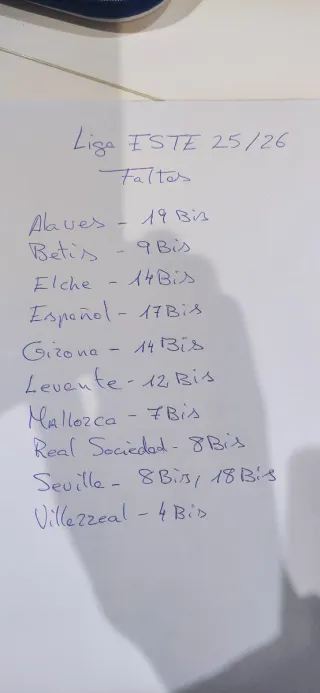 Liga ESTE 25/26
Faltas
Alaves - 19 Bis
Betis - 9 Bis
Elche - 14 Bis
Español - 17 Bis
Girona - 14 Bis
Levante - 12 Bis
Mallorca - 7 Bis
Real Sociedad - 8 Bis
Sevilla - 8 Bis, 18 Bis
Villarreal - 4 Bis